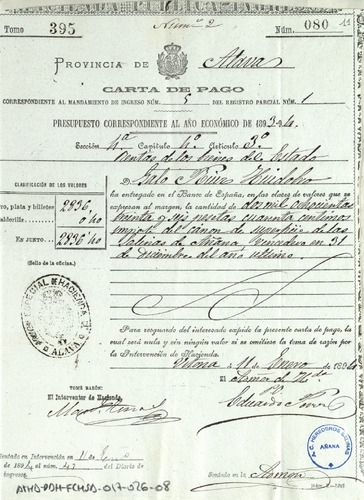 Núm.º 2
Tomo 395 Núm. 080
PROVINCIA DE Alava
CARTA DE PAGO
CORRESPONDIENTE AL MANDAMIENTO DE INGRESO NÚM. 5 DEL REGISTRO PARCIAL NÚM. 1
PRESUPUESTO CORRESPONDIENTE AL AÑO ECONÓMICO DE 1893-94.
Sección 4ª Capítulo 4º Artículo 3º
Rentas de los bienes del Estado
CLASIFICACIÓN DE LOS VALORES
D.
ha entregado en el Banco de España, en las clases de valores que
se expresan al margen, la cantidad de dos mil ochocientas
treinta y seis pesetas cuarenta céntimos
plata y billetes 2836,
calderilla 0'40
EN JUNTO 2836'40
importe del canon de superficie de las
Salinas de Añana, vencedero en 31
de Diciembre del año último
(Sello de la oficina)
ESPECIAL DE HACIENDA
ALAVA
Para resguardo del interesado expido la presente carta de pago, la
cual será nula y sin ningún valor si se omitiese la toma de razón por
la Intervención de Hacienda.
11 Enero de 1894
TOMÉ RAZÓN:
El Interventor de Hacienda,
Eduardo
Sentado en Intervención en 11 de Enero
de 1894 al núm. 47 del Diario de
Ingresos.
Sentado en la
AÑANA
ATHD-PDH-FCHSD-017-026-08